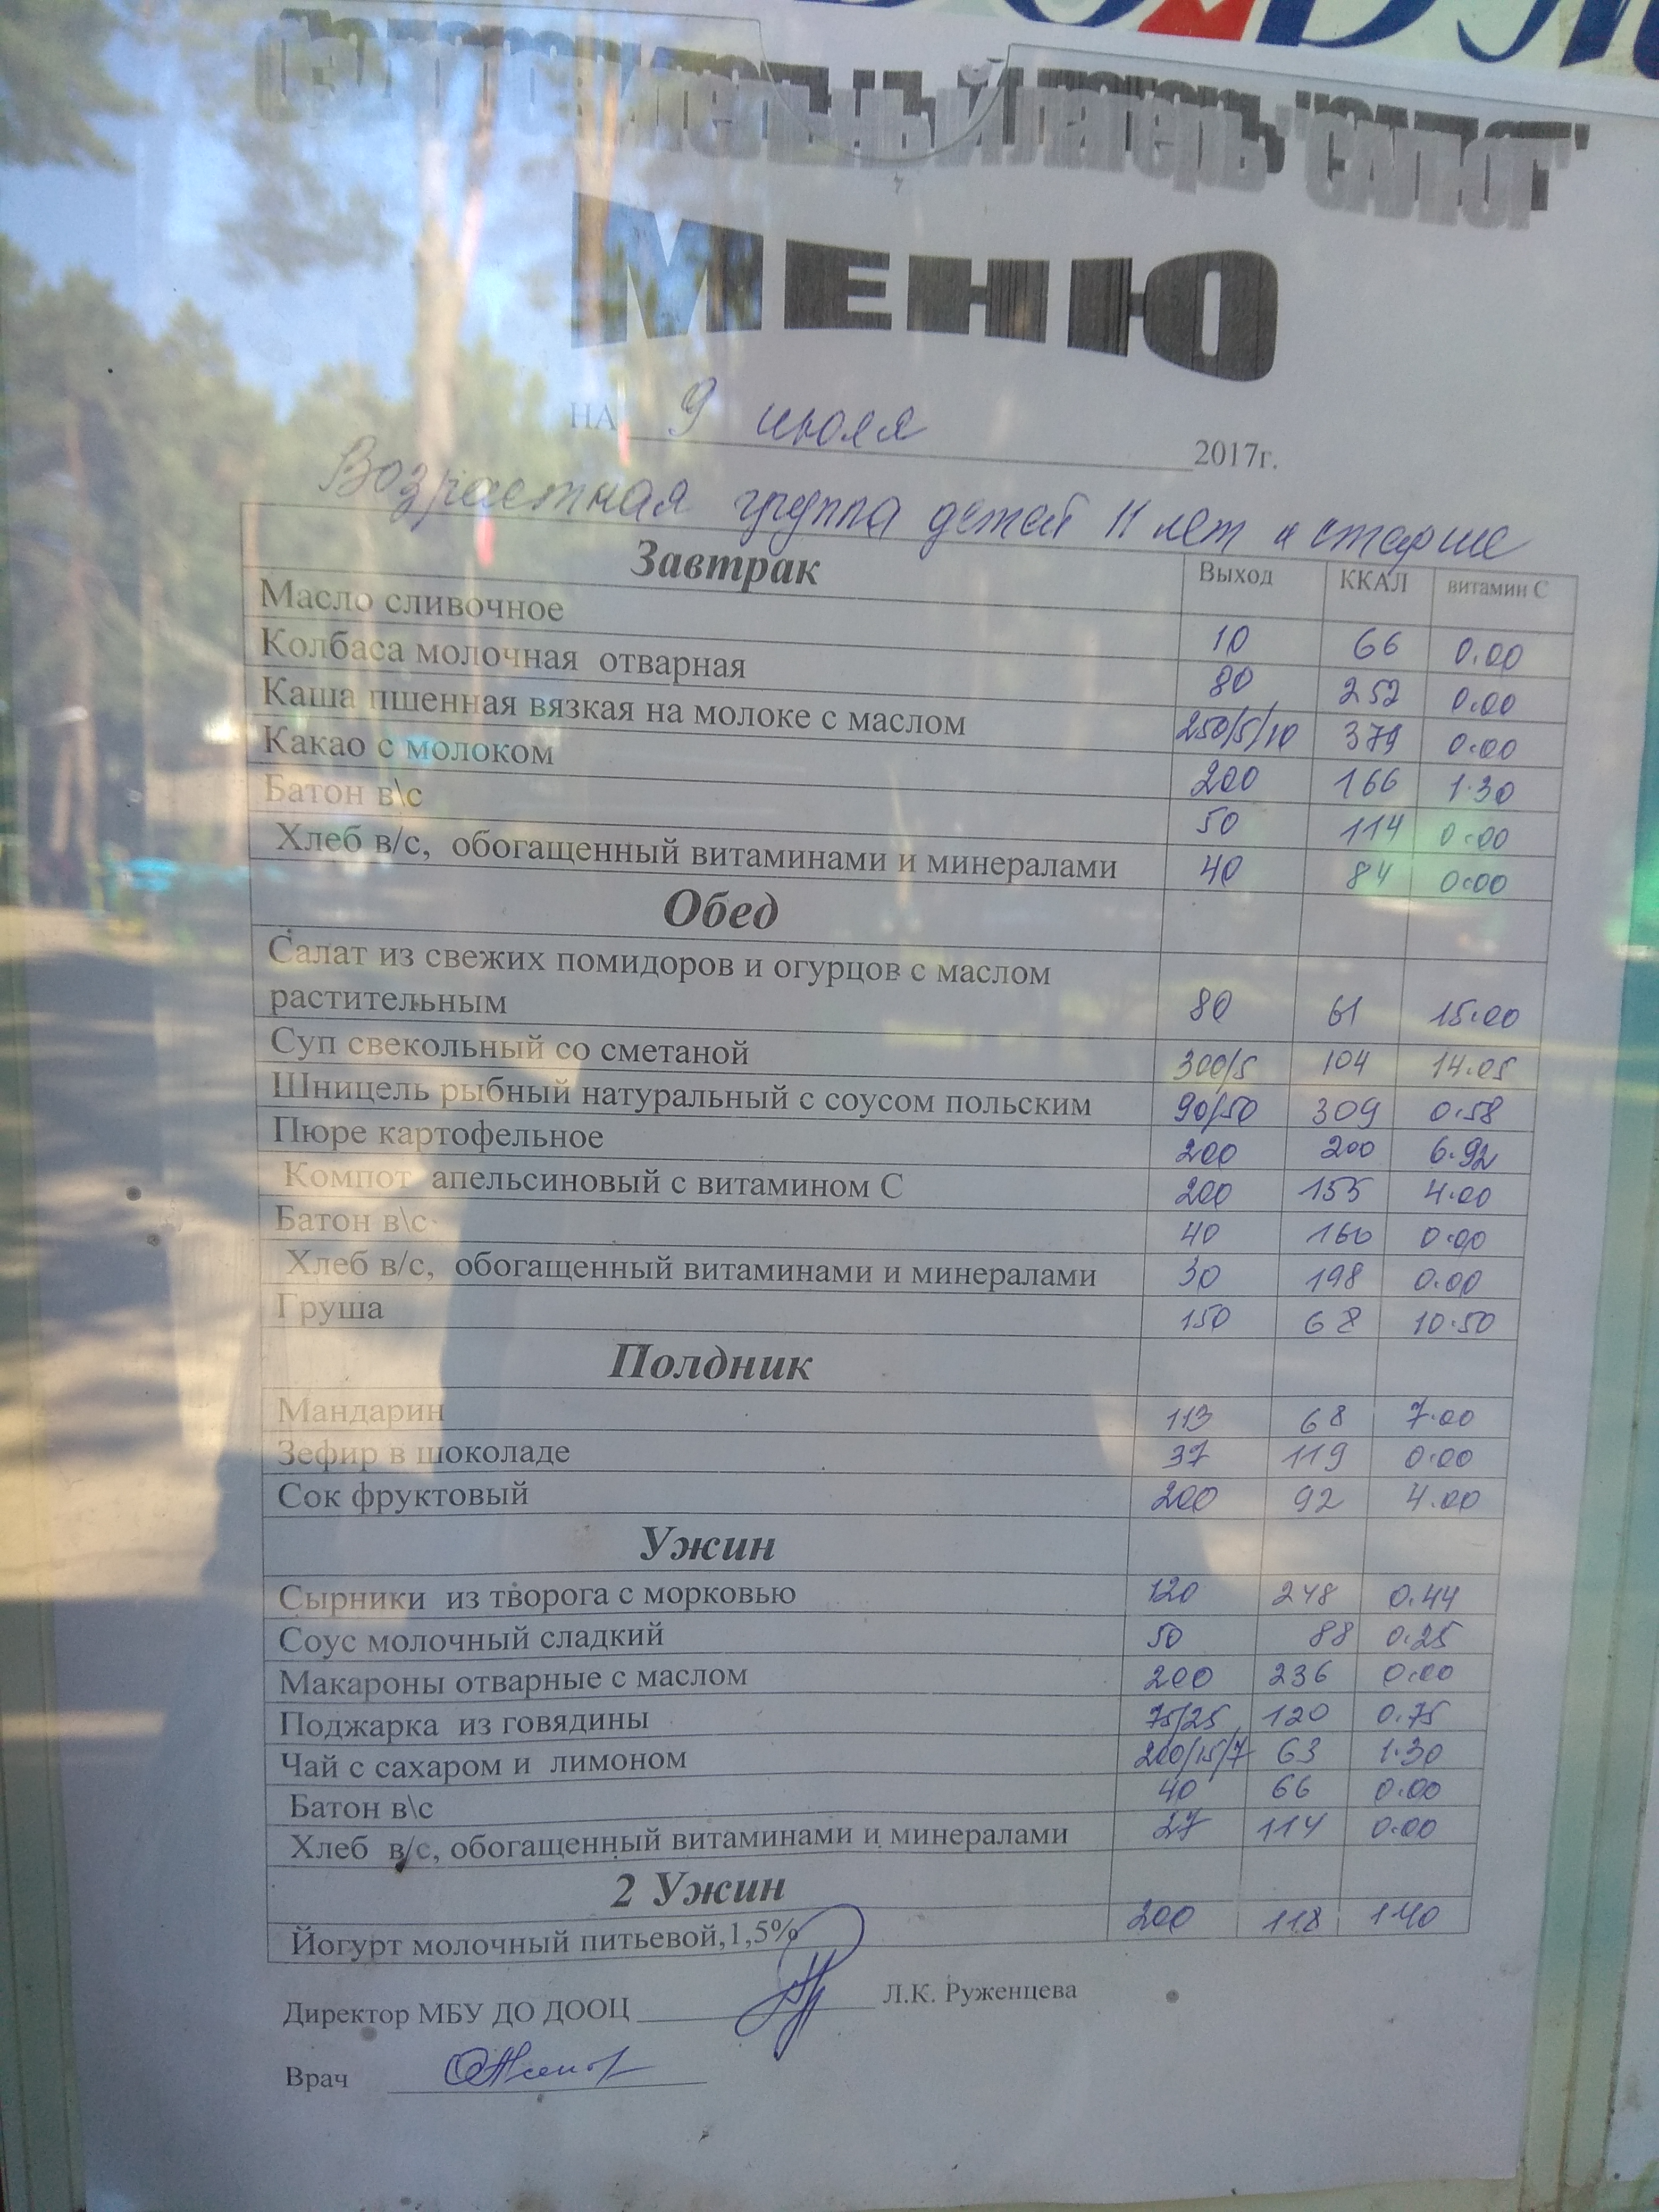 Оздоровительный лагерь "САЛЮТ"
МЕНЮ
НА 9 июля 2017г.
Возрастная группа детей 11 лет и старше
Завтрак Выход ККАЛ витамин С
Масло сливочное 10 66 0.00
Колбаса молочная отварная 80 252 0.00
Каша пшенная вязкая на молоке с маслом 250/5/10 379 0.00
Какао с молоком 200 166 1.30
Батон в\с 50 114 0.00
Хлеб в/с, обогащенный витаминами и минералами 40 84 0.00
Обед
Салат из свежих помидоров и огурцов с маслом
растительным 80 61 15.00
Суп свекольный со сметаной 300/5 104 14.05
Шницель рыбный натуральный с соусом польским 90/50 309 0.58
Пюре картофельное 200 200 6.92
Компот апельсиновый с витамином С 200 155 4.00
Батон в\с 40 160 0.00
Хлеб в/с, обогащенный витаминами и минералами 30 198 0.00
Груша 150 68 10.50
Полдник
Мандарин 113 68 7.00
Зефир в шоколаде 37 119 0.00
Сок фруктовый 200 92 4.00
Ужин
Сырники из творога с морковью 120 248 0.44
Соус молочный сладкий 50 88 0.25
Макароны отварные с маслом 200 236 0.00
Поджарка из говядины 75/25 120 0.75
Чай с сахаром и лимоном 200/15/7 63 1.30
Батон в\с 40 66 0.00
Хлеб в/с, обогащенный витаминами и минералами 27 114 0.00
2 Ужин
Йогурт молочный питьевой,1,5% 200 118 1.40
Директор МБУ ДО ДООЦ Л.К. Руженцева
Врач